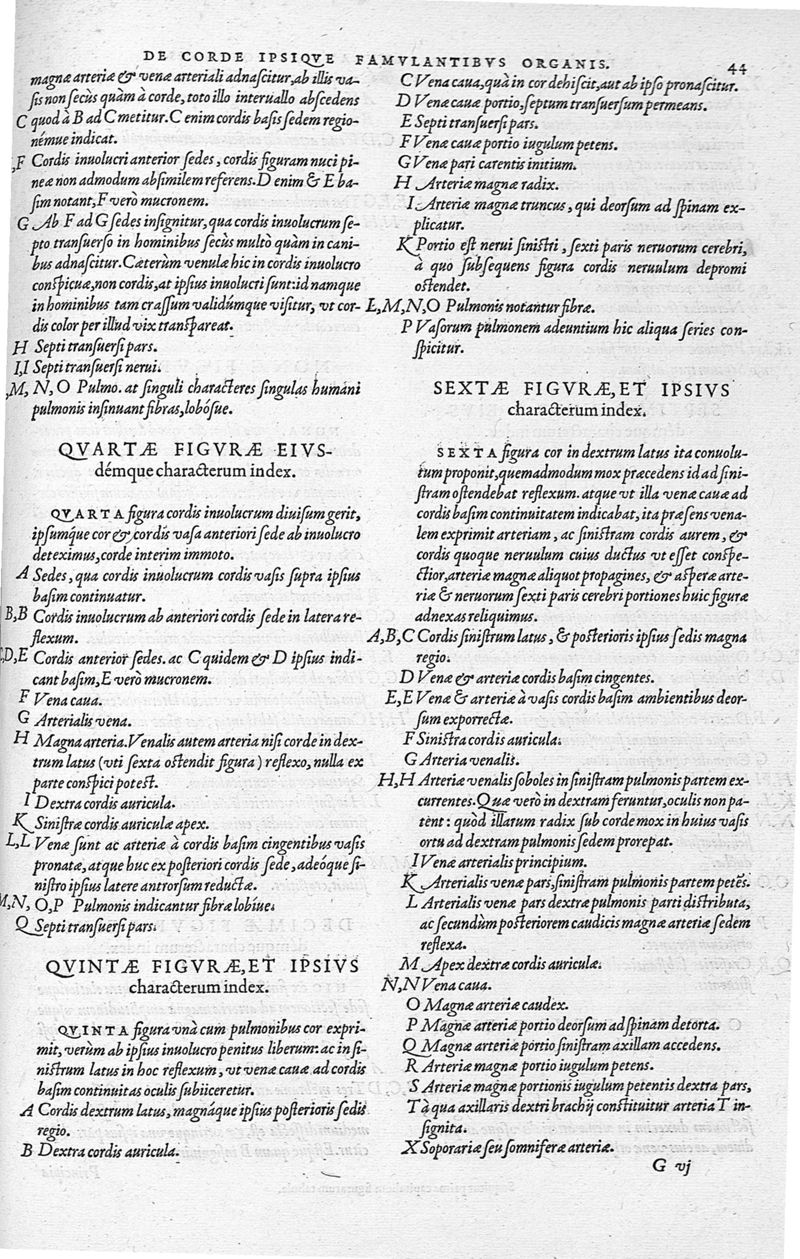 DE CORDE IPSIQVE FAMVLANTIBVS ORGANIS. 44
magnæ arteriæ & venæ arteriali adnaſcitur, ab illis va-
ſis non ſecùs quàm à corde, toto illo interuallo abſcedens
C quod à B ad C metitur. C enim cordis baſis ſedem regio-
némue indicat.
,F Cordis inuolucri anterior ſedes, cordis figuram nuci pi-
neæ non admodum abſimilem referens. D enim & E ba-
ſim notant, F verò mucronem.
G Ab F ad G ſedes inſignitur, qua cordis inuolucrum ſe-
pto tranſuerſo in hominibus ſecùs multò quàm in cani-
bus adnaſcitur. Cæterùm venulæ hic in cordis inuolucro
conſpicuæ, non cordis, at ipſius inuolucri ſunt: id namque
in hominibus tam craſſum validúmque viſitur, vt cor-
dis color per illud vix tranſpareat.
H Septi tranſuerſi pars.
I,I Septi tranſuerſi nerui.
,M, N, O Pulmo. at ſinguli characteres ſingulas humani
pulmonis inſinuant fibras, lobóſue.
QVARTÆ FIGVRÆ EIVS-
démque characterum index.
QVARTA figura cordis inuolucrum diuiſum gerit,
ipſumq́ue cor & cordis vaſa anteriori ſede ab inuolucro
deteximus, corde interim immoto.
A Sedes, qua cordis inuolucrum cordis vaſis ſupra ipſius
baſim continuatur.
B,B Cordis inuolucrum ab anteriori cordis ſede in latera re-
flexum.
C,D,E Cordis anterior ſedes. ac C quidem & D ipſius indi-
cant baſim, E verò mucronem.
F Vena caua.
G Arterialis vena.
H Magna arteria. Venalis autem arteria niſi corde in dex-
trum latus (vti ſexta oſtendit figura) reflexo, nulla ex
parte conſpici poteſt.
I Dextra cordis auricula.
K Siniſtræ cordis auriculæ apex.
L,L Venæ ſunt ac arteriæ à cordis baſim cingentibus vaſis
pronatæ, atque huc ex poſteriori cordis ſede, adeóque ſi-
niſtro ipſius latere antrorſum reductæ.
M,N, O,P Pulmonis indicantur fibræ lobíue.
Q Septi tranſuerſi pars.
QVINTÆ FIGVRÆ, ET IPSIVS
characterum index.
QVINTA figura vnà cum pulmonibus cor expri-
mit, verùm ab ipſius inuolucro penitus liberum: ac in ſi-
niſtrum latus in hoc reflexum, vt venæ cauæ ad cordis
baſim continuitas oculis ſubiiceretur.
A Cordis dextrum latus, magnáque ipſius poſterioris ſedis
regio.
B Dextra cordis auricula.
C Vena caua, quà in cor dehiſcit, aut ab ipſo pronaſcitur.
D Venæ cauæ portio, ſeptum tranſuerſum permeans.
E Septi tranſuerſi pars.
F Venæ cauæ portio iugulum petens.
G Venæ pari carentis initium.
H Arteriæ magnæ radix.
I Arteriæ magnæ truncus, qui deorſum ad ſpinam ex-
plicatur.
K Portio eſt nerui ſiniſtri, ſexti paris neruorum cerebri,
à quo ſubſequens figura cordis neruulum depromi
oſtendet.
L,M,N,O Pulmonis notantur fibræ.
P Vaſorum pulmonem adeuntium hic aliqua ſeries con-
ſpicitur.
SEXTÆ FIGVRÆ, ET IPSIVS
characterum index.
SEXTA figura cor in dextrum latus ita conuolu-
tum proponit, quemadmodum mox præcedens id ad ſini-
ſtram oſtendebat reflexum. atque vt illa venæ cauæ ad
cordis baſim continuitatem indicabat, ita præſens vena-
lem exprimit arteriam, ac ſiniſtram cordis aurem, &
cordis quoque neruulum cuius ductus vt eſſet conſpe-
ctior, arteriæ magnæ aliquot propagines, & aſperæ arte-
riæ & neruorum ſexti paris cerebri portiones huic figuræ
adnexas reliquimus.
A,B,C Cordis ſiniſtrum latus, & poſterioris ipſius ſedis magna
regio.
D Venæ & arteriæ cordis baſim cingentes.
E,E Venæ & arteriæ à vaſis cordis baſim ambientibus deor-
ſum exporrectæ.
F Siniſtra cordis auricula.
G Arteria venalis.
H,H Arteriæ venalis ſoboles in ſiniſtram pulmonis partem ex-
currentes. Quæ verò in dextram feruntur, oculis non pa-
tent: quòd illarum radix ſub corde mox in huius vaſis
ortu ad dextram pulmonis ſedem prorepat.
I Venæ arterialis principium.
K Arterialis venæ pars, ſiniſtram pulmonis partem petẽs.
L Arterialis venæ pars dextræ pulmonis parti diſtributa,
ac ſecundùm poſteriorem caudicis magnæ arteriæ ſedem
reflexa.
M Apex dextræ cordis auriculæ.
N,N Vena caua.
O Magnæ arteriæ caudex.
P Magnæ arteriæ portio deorſum ad ſpinam detorta.
Q Magnæ arteriæ portio ſiniſtram axillam accedens.
R Arteriæ magnæ portio iugulum petens.
S Arteriæ magnæ portionis iugulum petentis dextra pars,
T à qua axillaris dextri brachij conſtituitur arteria T in-
ſignita.
X Soporariæ ſeu ſomniferæ arteriæ.
G vj